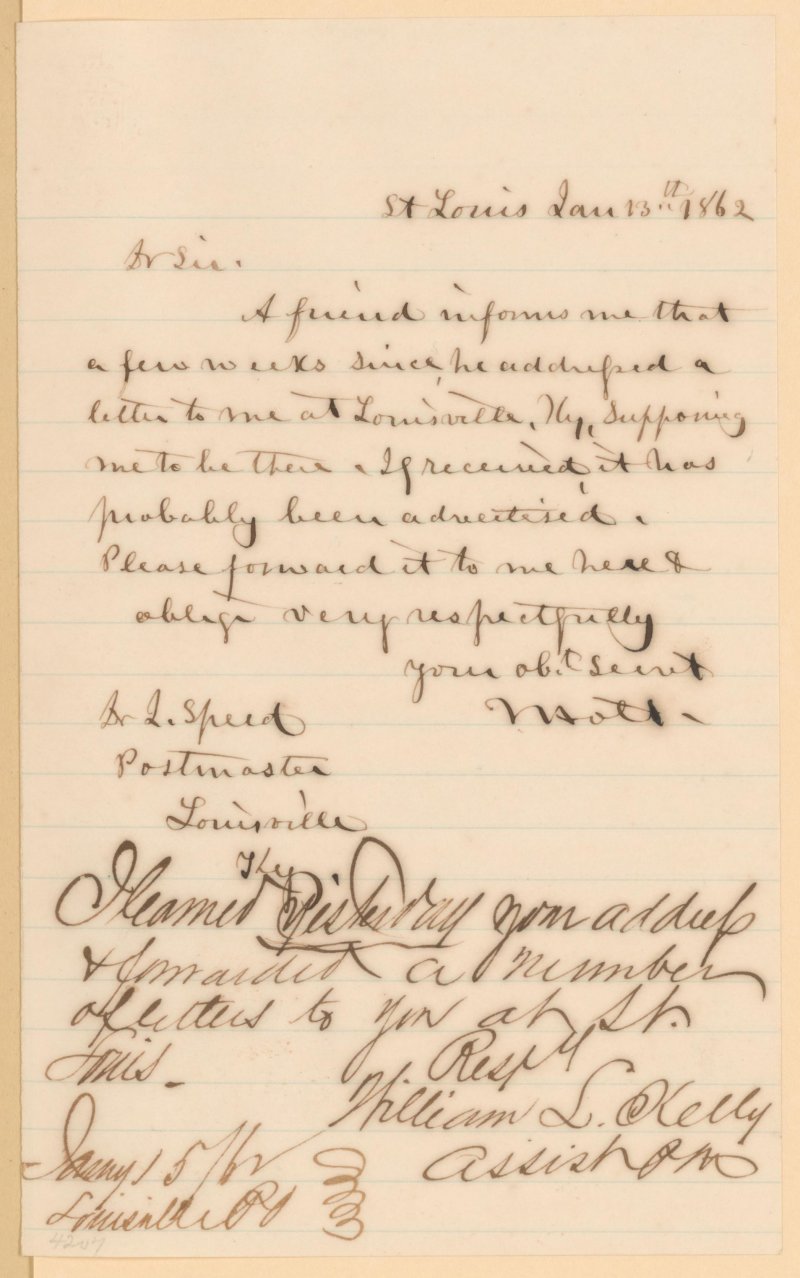 St Louis Jan 13th 1862
Dr Sir.
A friend informs me that
a few weeks since, he addressed a
letter to me at Louisville, Ky, supposing
me to be there. If received, it has
probably been advertised.
Please forward it to me here &
oblige very respectfully
your obt servt
Mott
Dr J. Speed
Postmaster
Louisville
Ky
I learned Yesterday your address
& forwarded a number
of letters to you at St.
Louis -
Respy
William L. Kelly
Assist P M
Jany 15/62
Louisville P O
4207